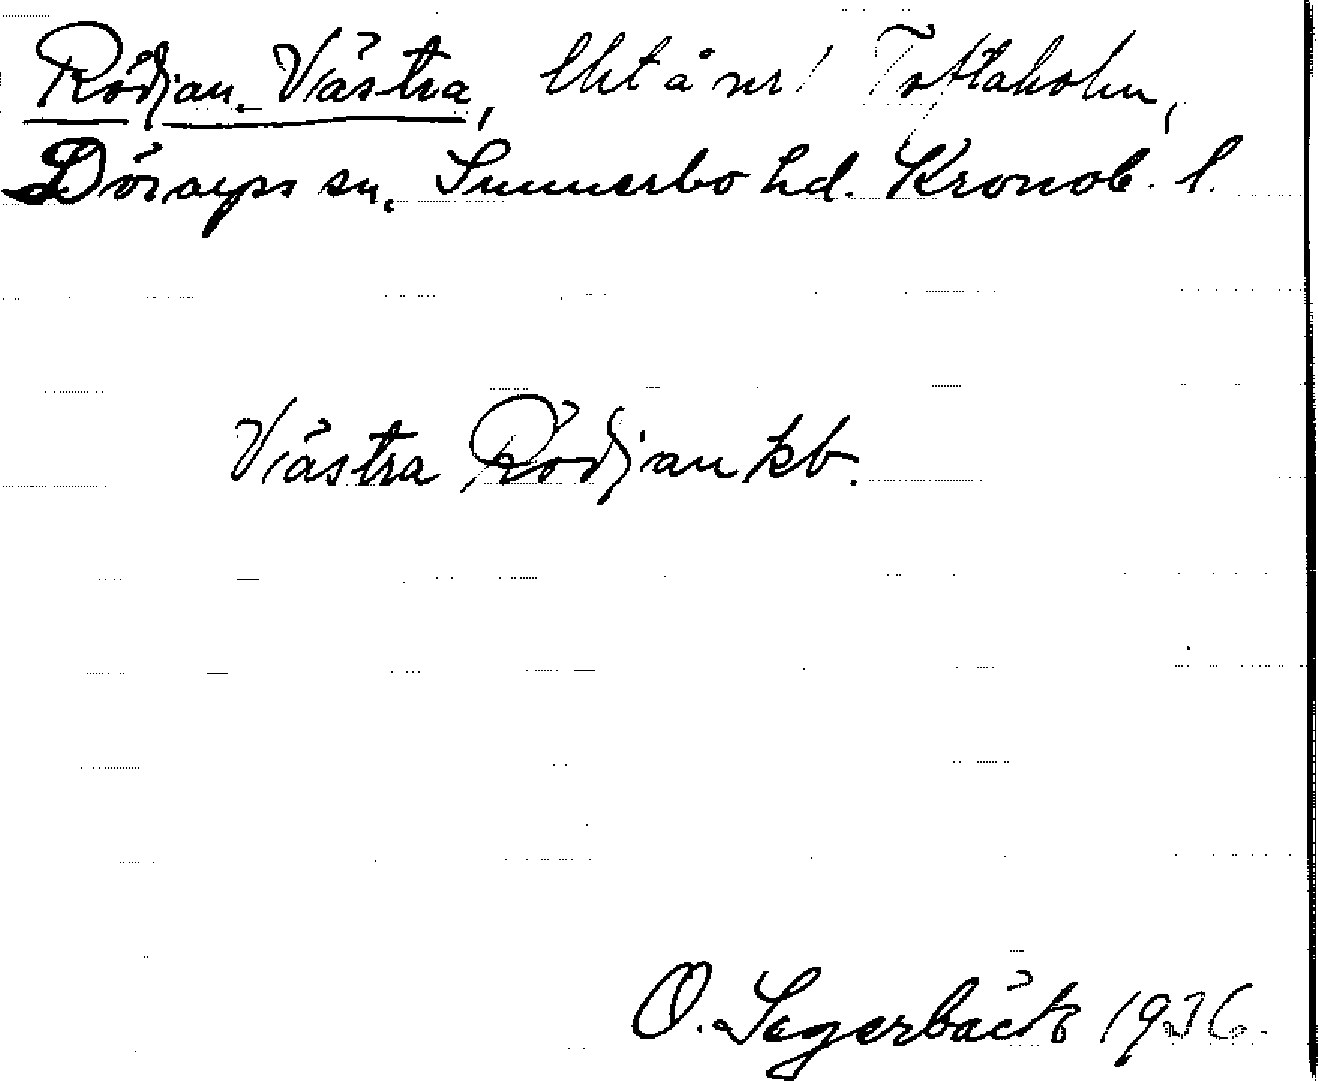 Rödjan, Västra, Uht å nr 1 Toftaholm,
Döraps sn, Sunnerbo hd. Kronob. l.
Västra Rödjan kb.
O. Segerbäck 1936.